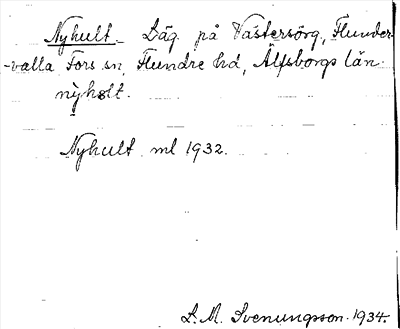 Nyhult. Läg. på Västersörg, Flunder-
-valla Fors sn, Flundre hd, Älfsborgs län.
nỳhʉlt.
Nyhult ml 1932.
S. M. Svenungsson. 1934.